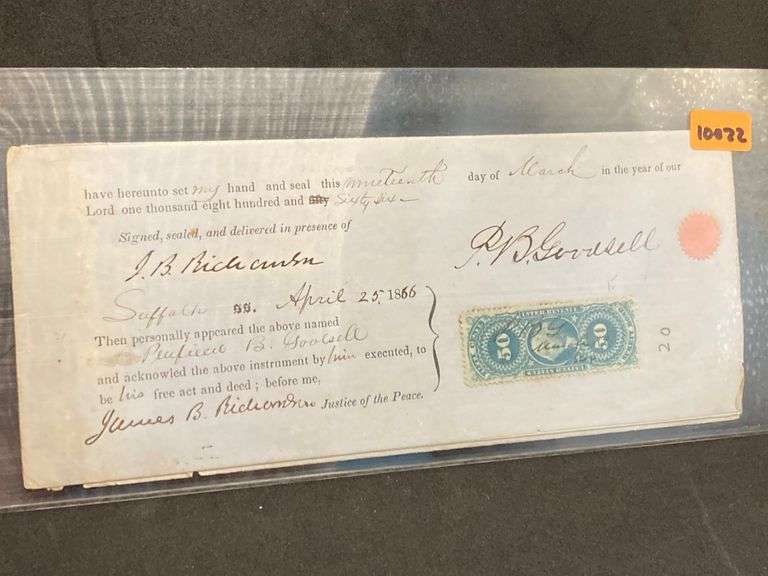 10072
have hereunto set my hand and seal this nineteenth day of March in the year of our
Lord one thousand eight hundred and fifty Sixty Six
Signed, sealed, and delivered in presence of
J. B. Richardson
P. B. Goodsell
Suffolk ss. April 25, 1866
Then personally appeared the above named
B. Goodsell
and acknowled the above instrument by him executed, to
be his free act and deed; before me,
James B. Richardson Justice of the Peace.
50
50
INTER. REVENUE
20